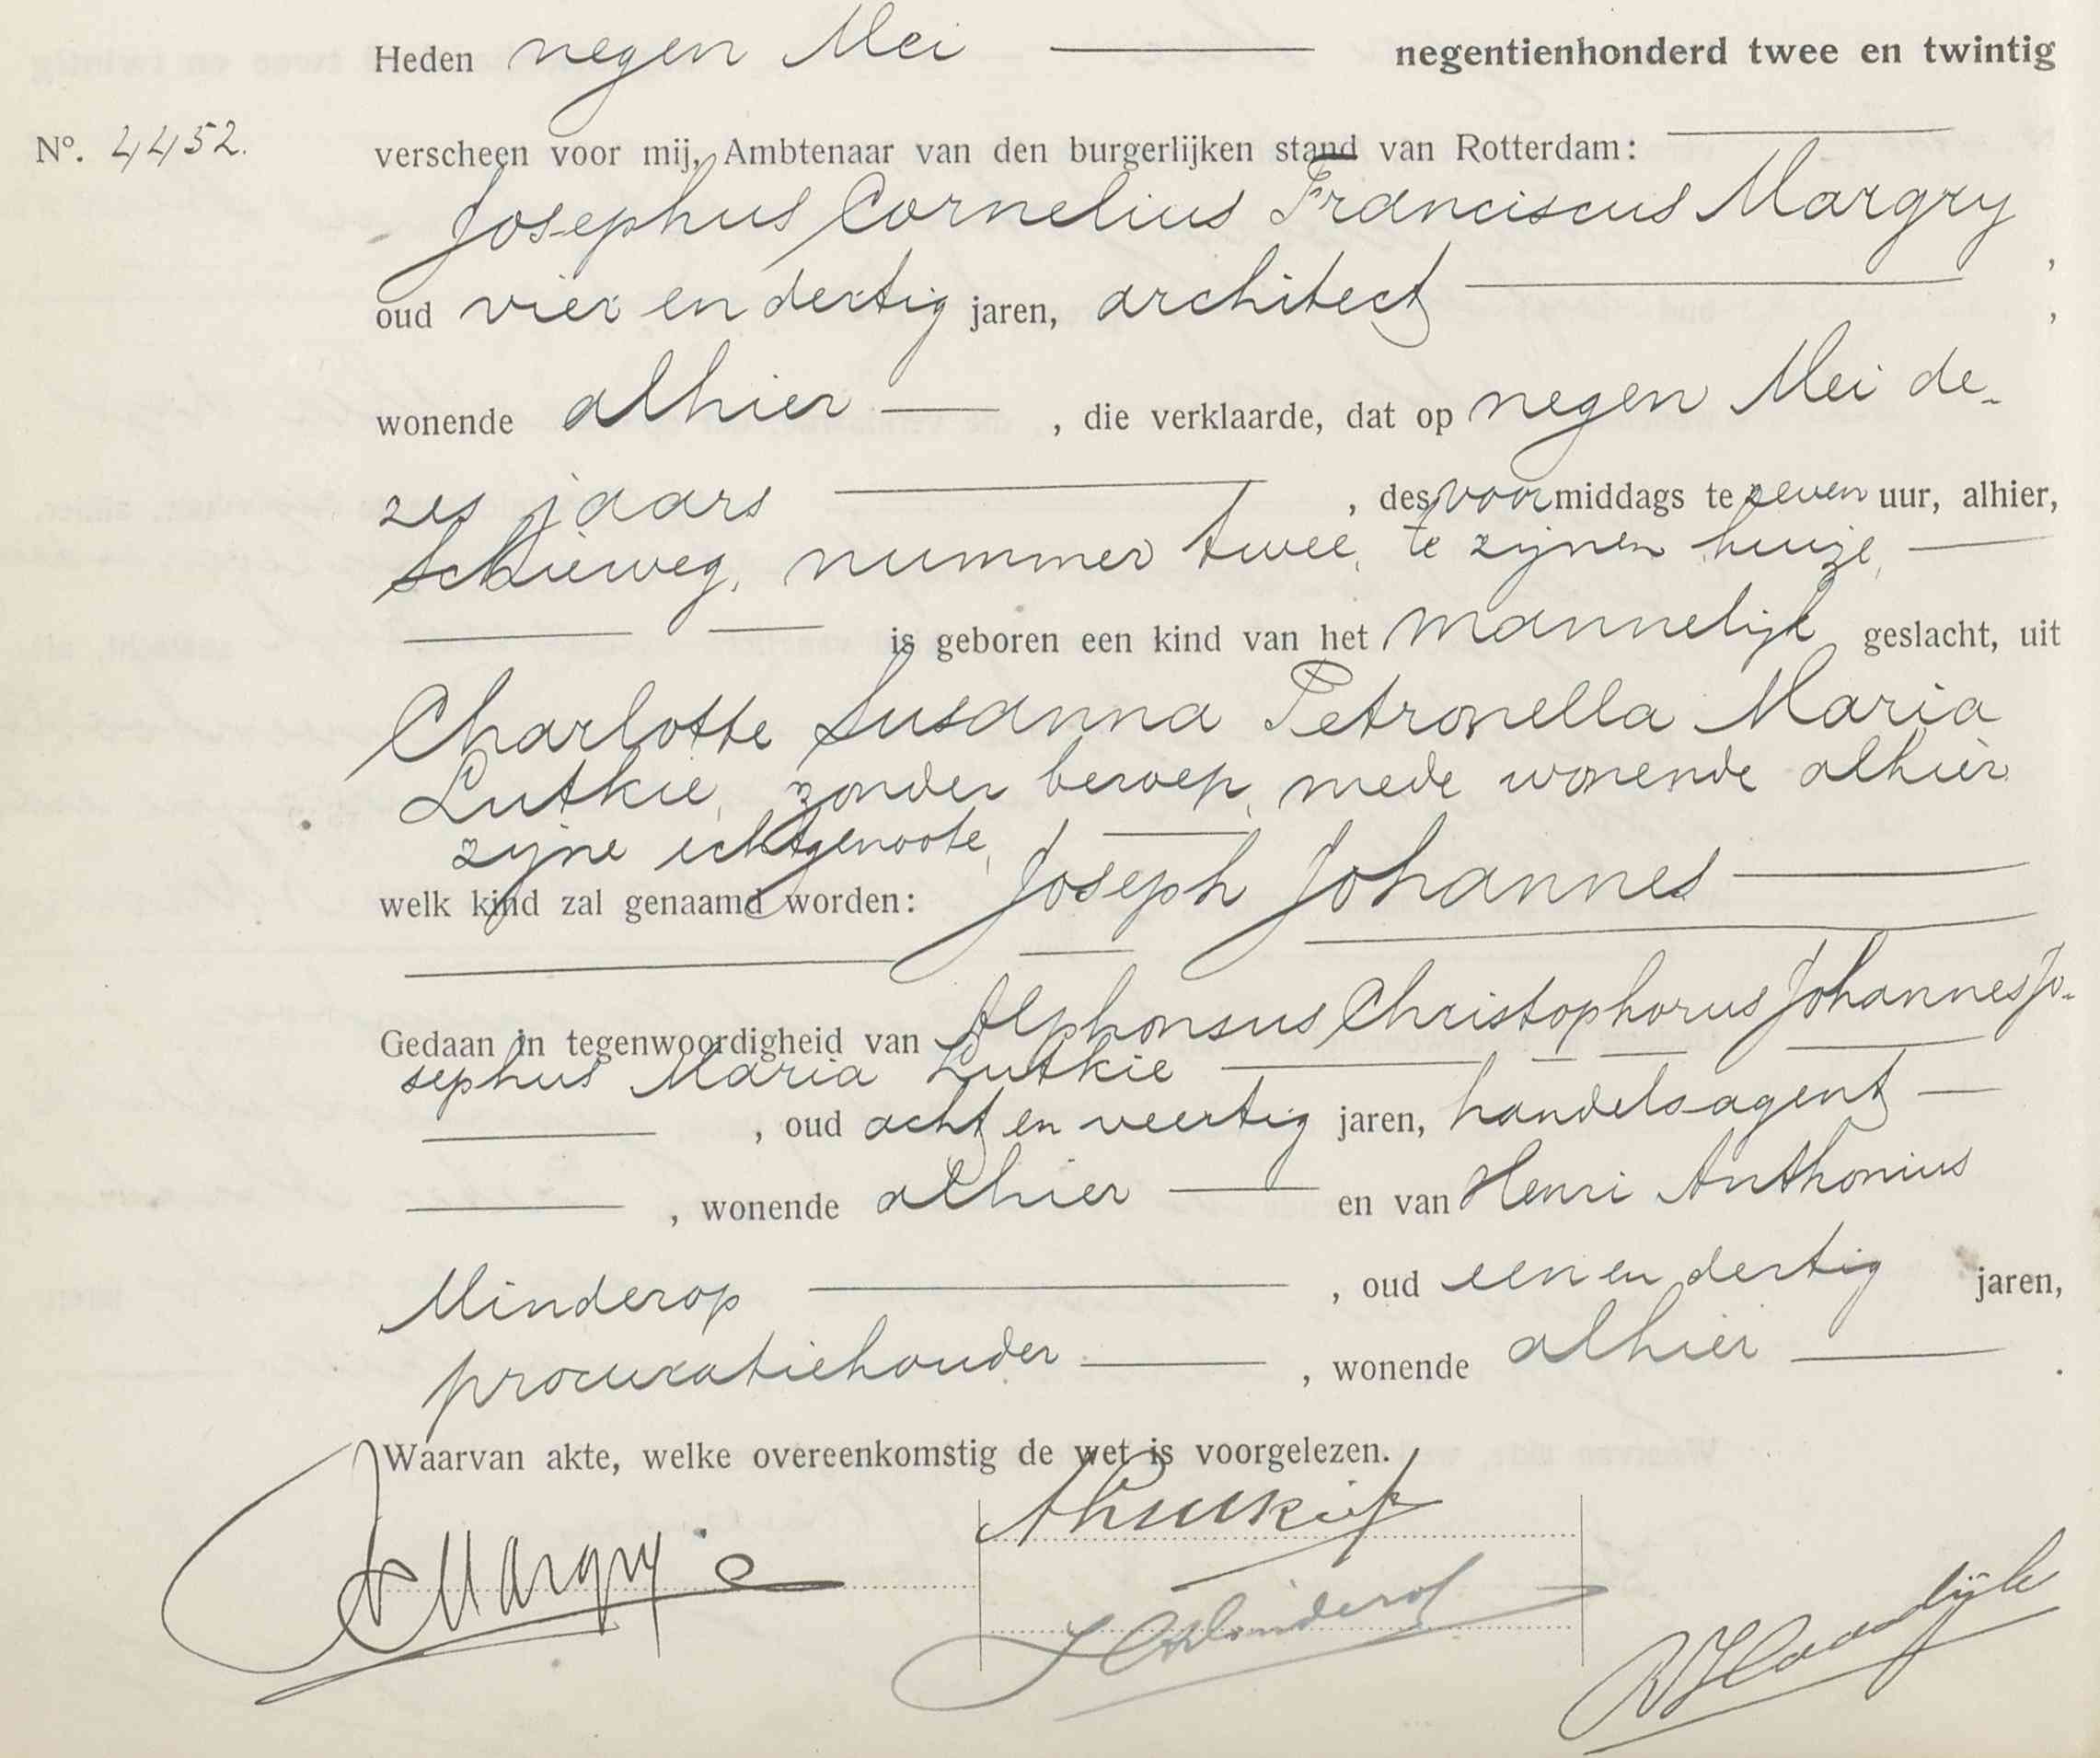 Heden negen Mei negentienhonderd twee en twintig
Nº. 4452. verscheen voor mij, Ambtenaar van den burgerlijken stand van Rotterdam:
Josephus Cornelius Franciscus Margry,
oud vier en dertig jaren, architect,
wonende alhier, die verklaarde, dat op negen Mei de-
zes jaars, des voormiddags te zeven uur, alhier,
Schieweg, nummer twee, te zijnen huize,
is geboren een kind van het mannelijk geslacht, uit
Charlotte Susanna Petronella Maria
Lutkie, zonder beroep, mede wonende alhier
zijne echtgenoote,
welk kind zal genaamd worden: Joseph Johannes
Gedaan in tegenwoordigheid van Alphonsus Christophorus Johannes Jo-
sephus Maria Lutkie
, oud acht en veertig jaren, handelsagent
, wonende alhier en van Henri Anthonius
Minderop, oud een en dertig jaren,
procuratiehouder, wonende alhier.
Waarvan akte, welke overeenkomstig de wet is voorgelezen.
Margry